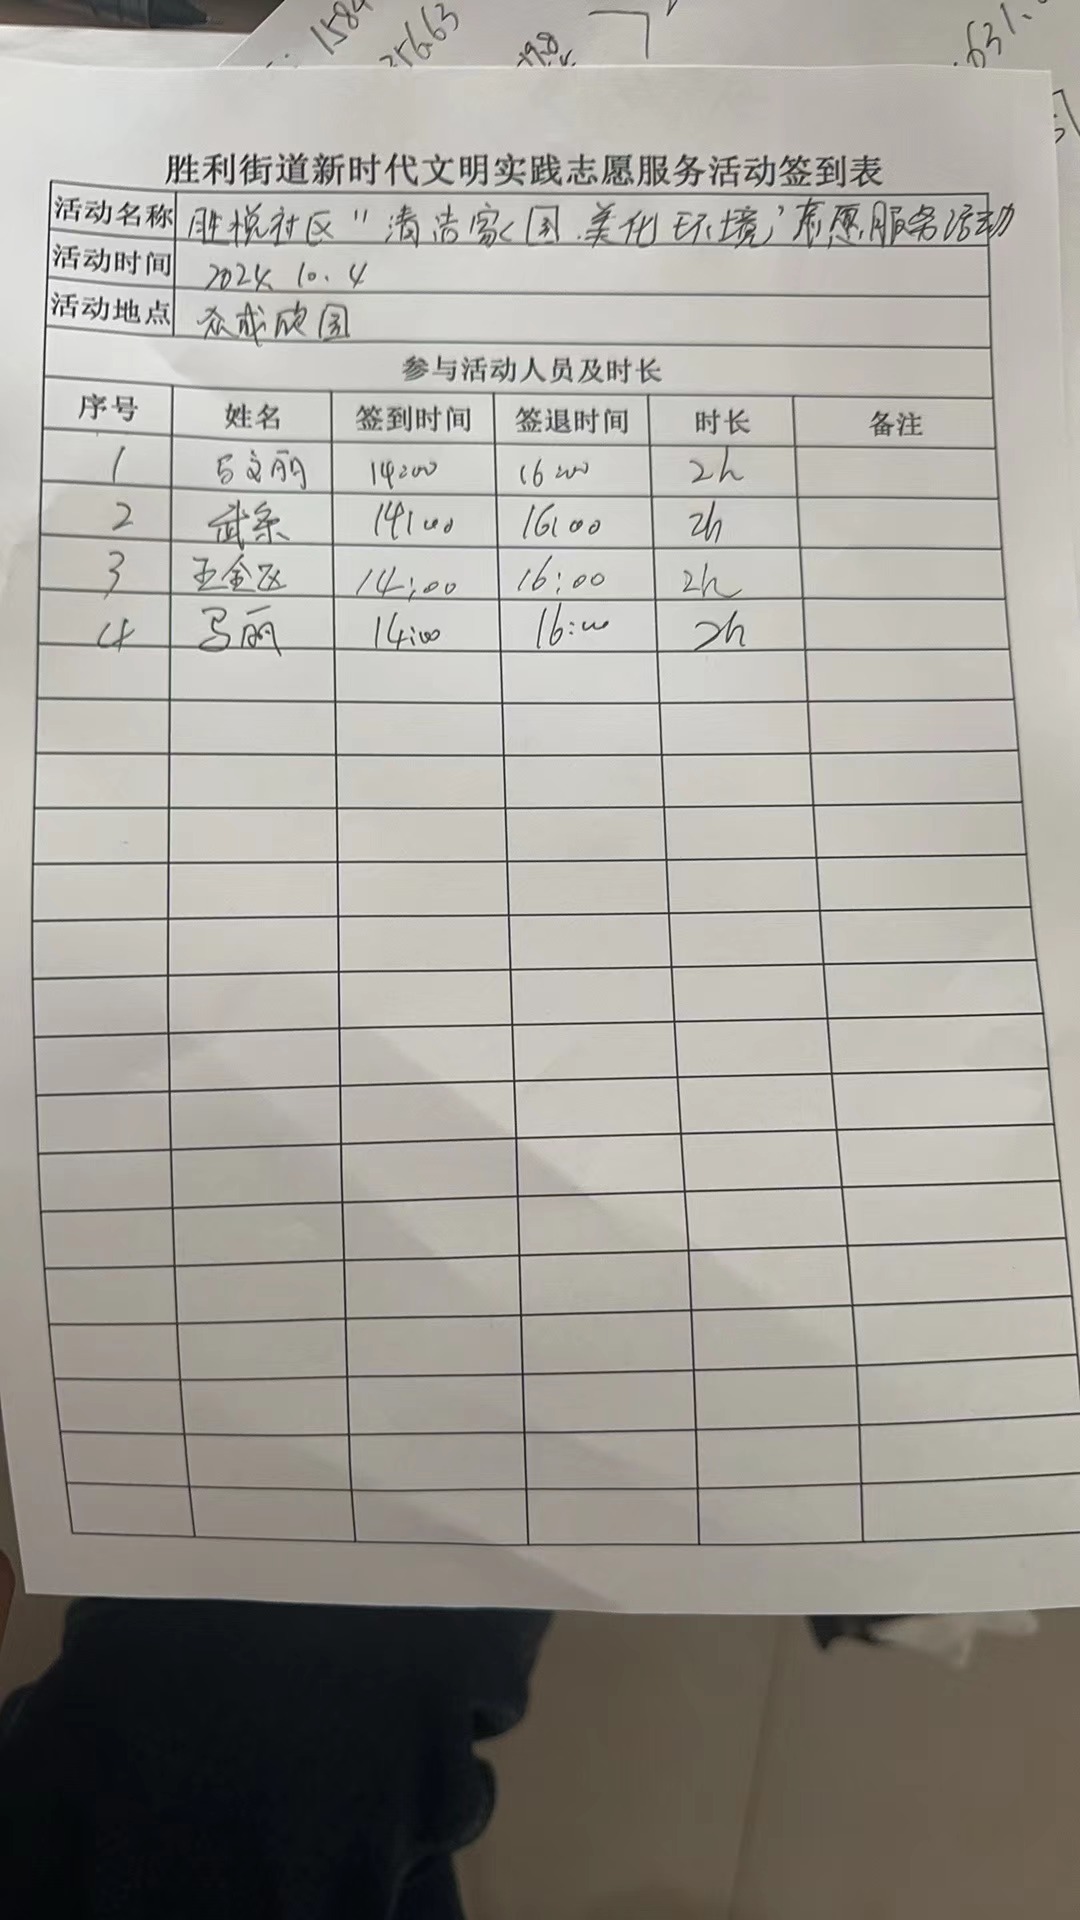 1584
256.63
631.
胜利街道新时代文明实践志愿服务活动签到表
活动名称 胜悦社区"清洁家园.美化环境"志愿服务活动
活动时间 2024.10.4
活动地点 众成欣园
参与活动人员及时长
序号 姓名 签到时间 签退时间 时长 备注
1 马文丽 14:00 16:00 2h
2 武 14:00 16:00 2h
3 王金 14:00 16:00 2h
4 马丽 14:00 16:00 2h